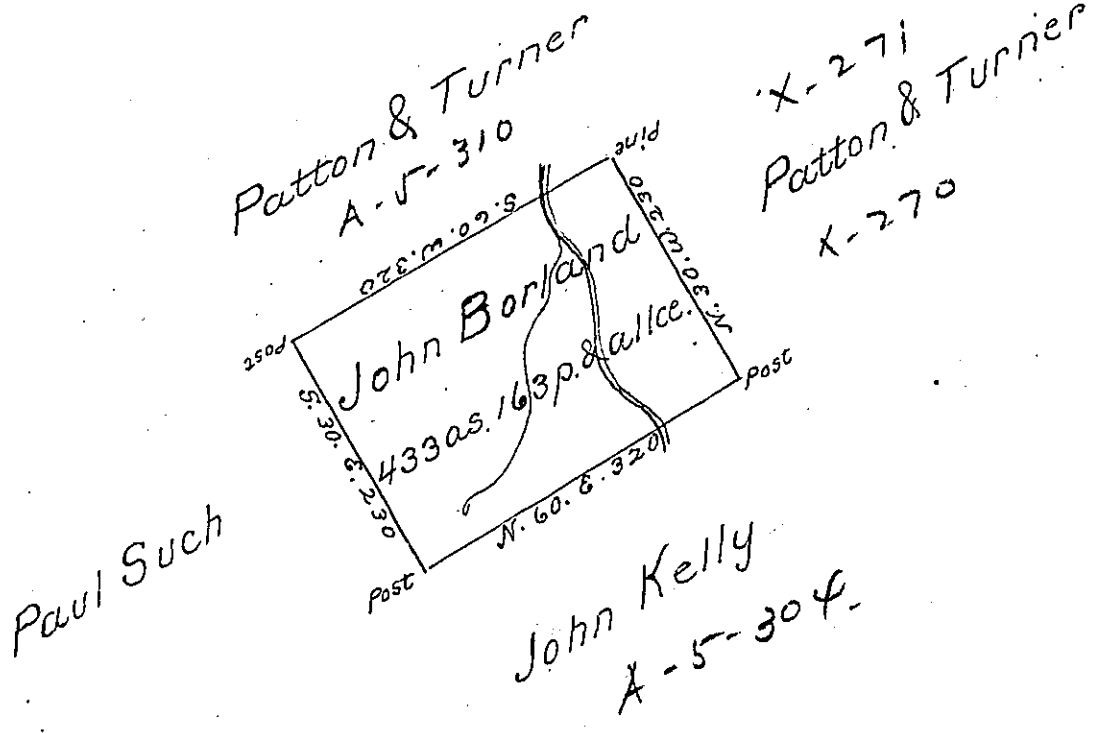 Patton & Turner
A-5-310
X-271
Patton & Turner
X-270
Pine
S. 60. W. 320
N. 30. W. 230
Post
John Borland
433 as. 163 p. & allce.
Post
S. 30. E. 230
N. 60. E. 320
Post
Paul Such
John Kelly
A-5-304.